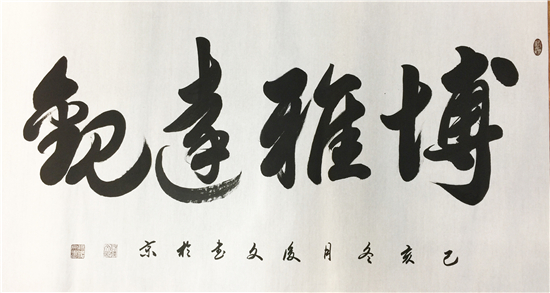 博雅達觀
己亥冬月俊文书於京